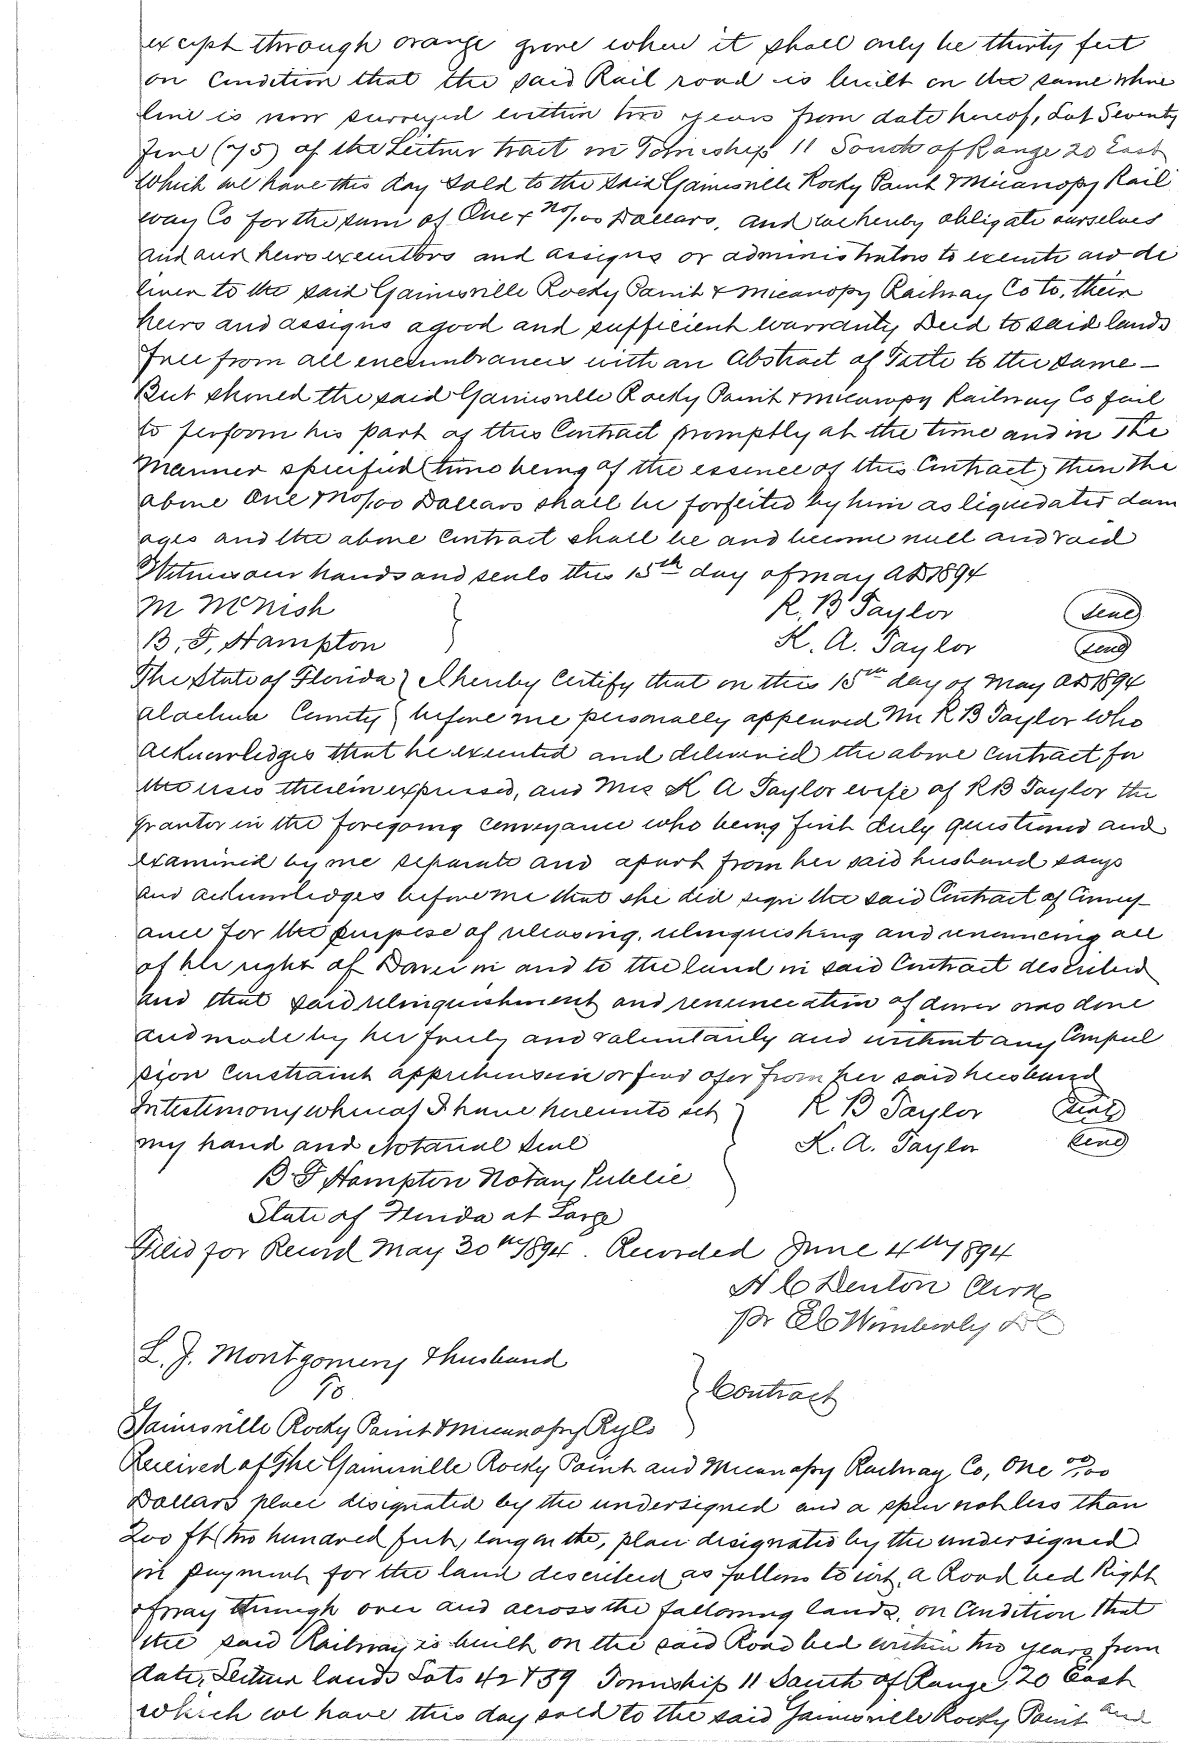 except through orange grove where it shall only be thirty feet
on Condition that the said Rail road is built on the same where
line is now surveyed within two years from date hereof, Lot Seventy
five (75) of the Leitner tract in Township 11 South of Range 20 East
Which we have this day sold to the said Gainesville Rocky Point & Micanopy Rail
way Co for the sum of One & No/00 Dollars, and we hereby obligate ourselves
and our heirs executors and assigns or administrators to execute and de
liver to the said Gainesville Rocky Point & Micanopy Railway Co to, their
heirs and assigns a good and sufficient warranty Deed to said lands
free from all encumbrances with an Abstract of Title to the same —
But should the said Gainesville Rocky Point & Micanopy Railway Co fail
to perform his part of this Contract promptly at the time and in the
Manner specified (time being of the essence of this Contract) then the
above One & No/00 Dollars shall be forfeited by him as liquidated dam
ages and the above Contract shall be and become null and void
Witness our hands and seals this 15th day of May AD 1894
M McNish } R. B Taylor (Seal)
B. F. Hampton K. A. Taylor (Seal)
The State of Florida } I hereby Certify that on this 15th day of May AD 1894
Alachua County } before me personally appeared Mr R B Taylor who
acknowledges that he executed and delivered the above Contract for
the uses therein expressed, and Mrs K A Taylor wife of R B Taylor the
grantor in the foregoing Conveyance who being first duly questioned and
examined by me separate and apart from her said husband says
and acknowledges before me that she did sign the said Contract of Convey-
ance for the purpose of releasing, relinquishing and renouncing all
of her right of Dower in and to the land in said Contract described
and that said relinquishment and renunciation of dower was done
and made by her freely and voluntarily and without any Compul
sion Constraint apprehension or fear of or from her said husband
In testimony whereof I have hereunto set } R B Taylor (Seal)
my hand and Notarial Seal K. A. Taylor (Seal)
B F Hampton Notary Public
State of Florida at Large
Filed for Record May 30th 1894. Recorded June 4th 1894
H C Denton Clerk
Pr E C Wimberly DC
L. J. Montgomery & husband
To } Contract
Gainesville Rocky Point & Micanopy Ry Co
Received of The Gainesville Rocky Point and Micanopy Railway Co, One 00/00
Dollars place designated by the undersigned and a spur not less than
200 ft (two hundred feet, long on the, place designated by the undersigned
in payment for the land described as follows to wit, a Road bed Right
of way through over and across the following lands, on Condition that
the said Railway is built on the said Road bed within two years from
date, Leitner lands Lots 42 & 39 Township 11 South of Range 20 East
which we have this day sold to the said Gainesville Rocky Point and